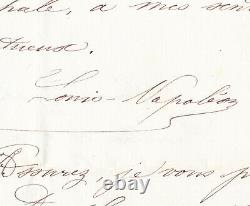 hale, à mes sen
tueux.
Louis-Napoléon
Assurez, je vous p